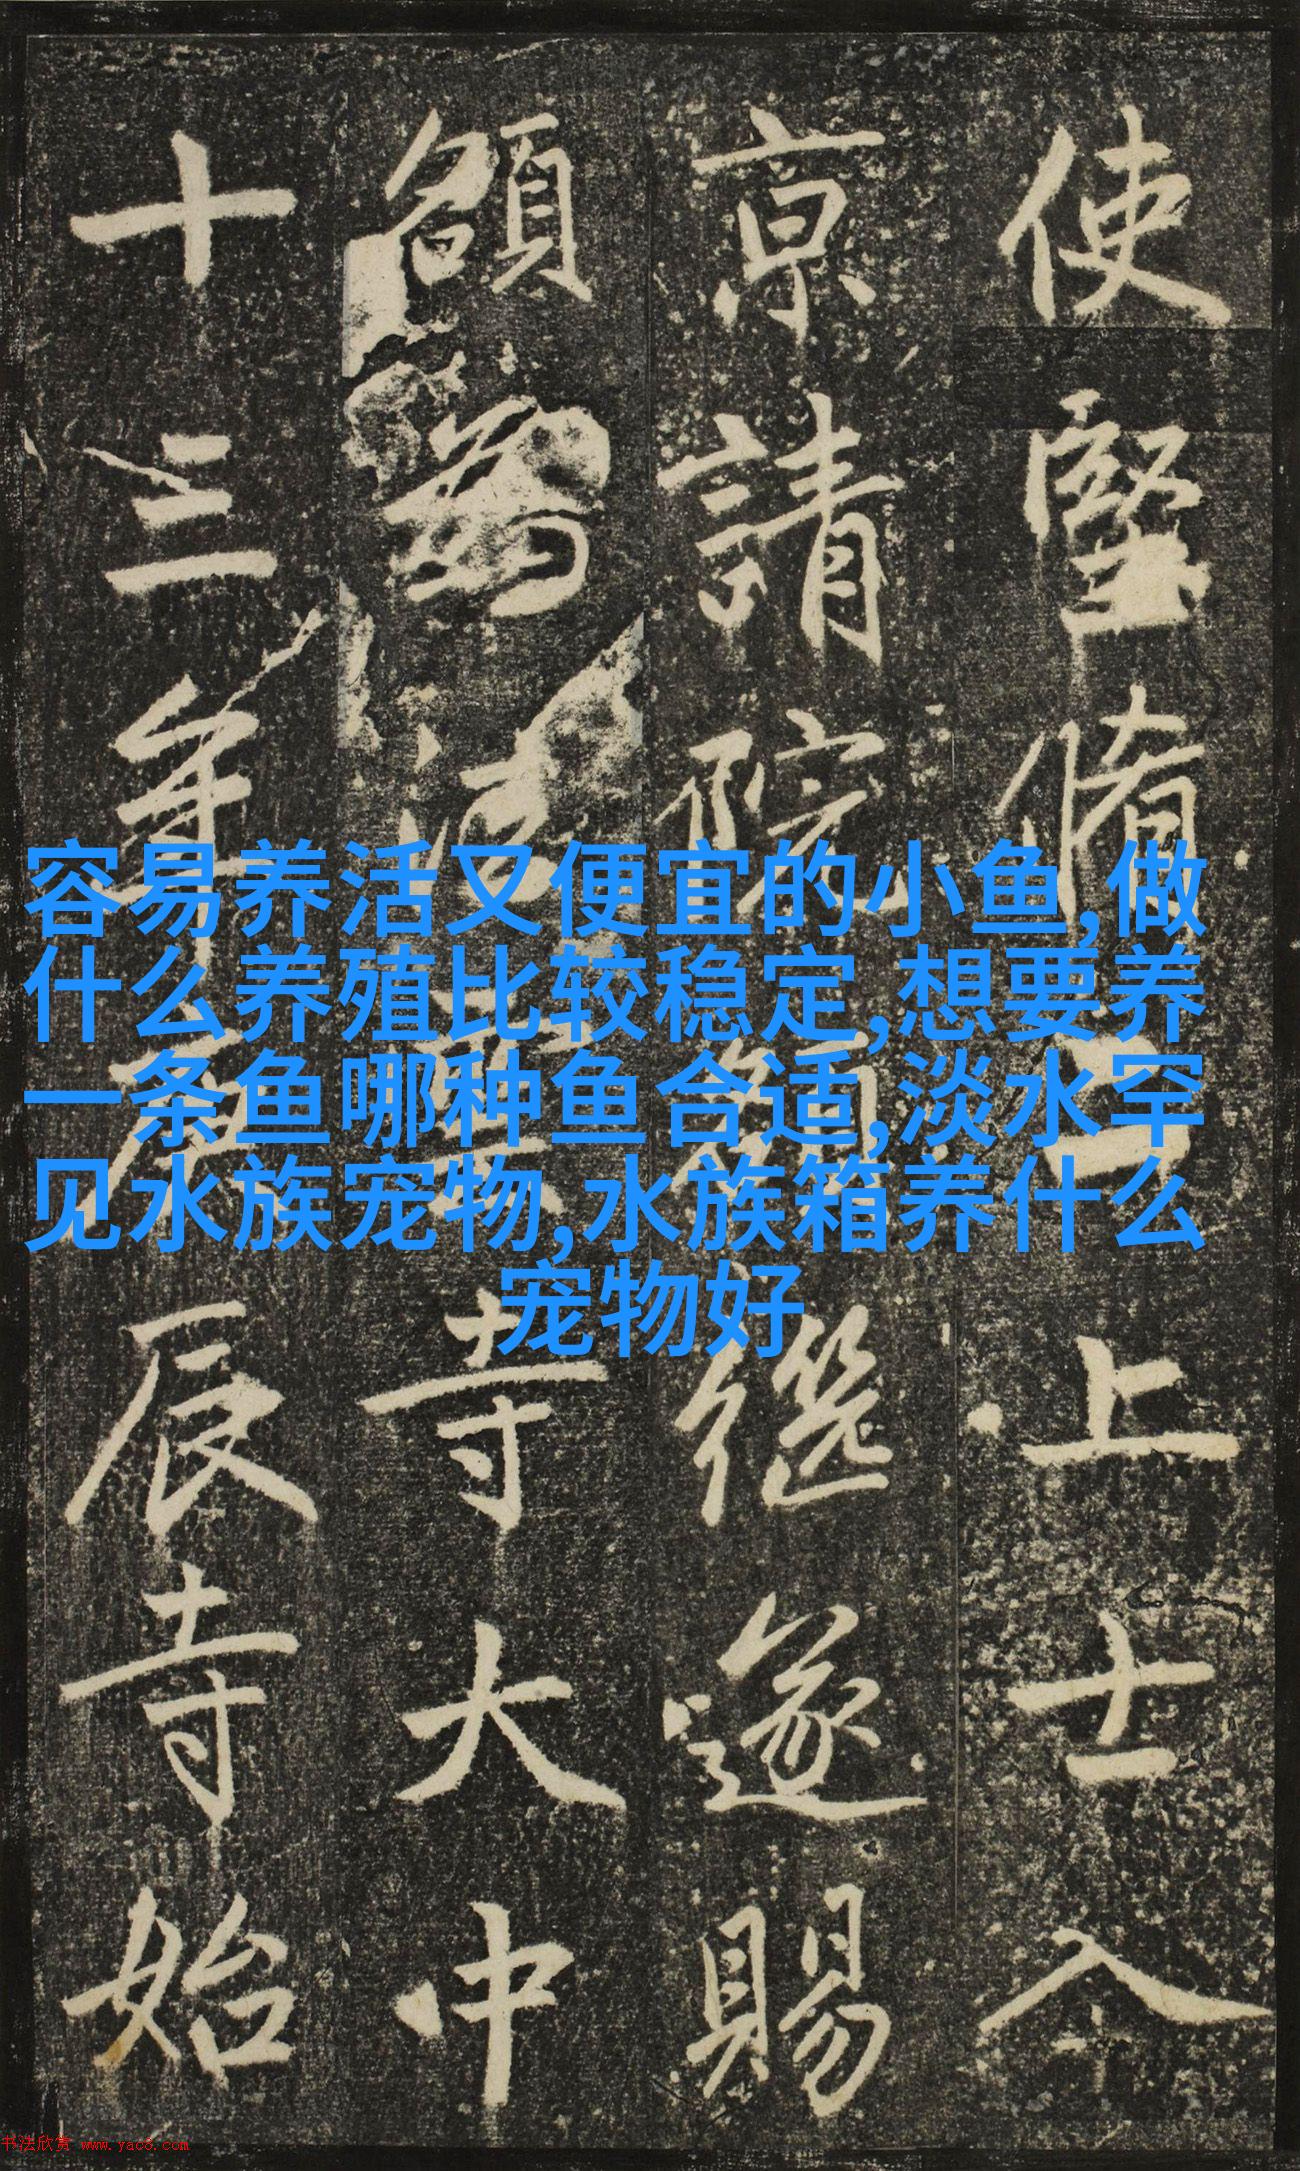 使堅脩上士入
京請院継遂賜
額為寺大中
十三年庚辰寺始
容易养活又便宜的小鱼,做
什么养殖比较稳定,想要养
一条鱼哪种鱼合适,淡水罕
见水族宠物,水族箱养什么
宠物好
书法欣赏 www.yac8.com